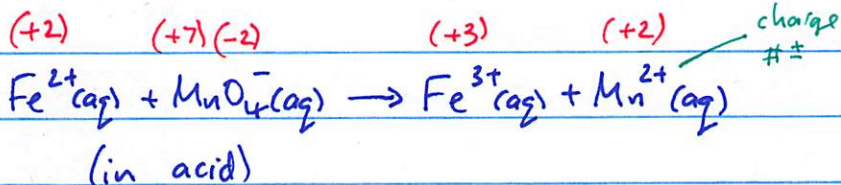 (+2) (+7) (-2) (+3) (+2) charge
# ±
Fe²⁺(aq) + MnO₄⁻(aq) → Fe³⁺(aq) + Mn²⁺(aq)
(in acid)